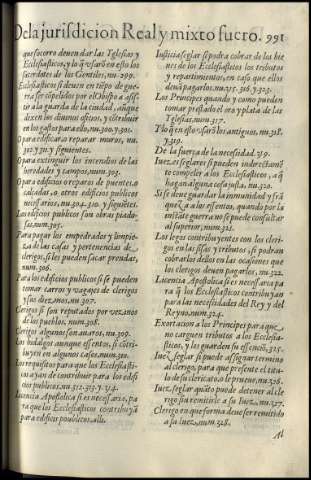 De la jurisdicion Real y mixto fuero. 991
que socorro deuen dar las Yglesias y
Eclesiasticos, y lo q̃ usarõ en esto los
sacerdotes de los Gentiles, nu. 299.
Eclesiasticos si deuen en tiẽpo de gue-
rra ser cõpelidos por el Obispo a assis-
tir a la guarda de la ciudad, aunque
dexen los diuinos oficios, y cõtribuir
en los gastos para ello, nu. 300. y 301.
O para edificar o reparar muros, nu.
302. y 311. y siguientes.
O para extinguir los incendios de las
heredades y campos, num. 303.
O para edificio o reparo de puentes, o
calçadas, o otros edificios publicos
necessarios, nu. 304. 310. y siguiẽtes.
Los edificios publicos son obras piado-
sas, num. 305.
Para pagar los empedrados y limpie-
za de las calles y pertenencias de
clerigos, si les pueden sacar prendas,
num. 306.
Para los edificios publicos si se pueden
tomar carros y vagages de clerigos
y sus diezmos, nu. 307.
Clerigos si son reputados por vezinos
de los pueblos, num. 308.
Clerigos algunos son auaros, nu. 309.
Los hidalgos aunque essentos, si cõtri-
buyen en algunos casos, num. 310.
Los requisitos para que los Eclesiasti-
cos ayan de contribuir para los edifi-
cios publicos, nu. 312. 313. y 314.
Licencia Apostolica si es necessaria, pa
ra que los Eclesiasticos contribuyã
para edificios publicos, alli.
Iusticia seglar si podra cobrar de los bie
nes de los Eclesiasticos los tributos
y repartimientos, en caso que ellos
deuã pagarlos, nu. 315. 316. y 323.
Los Principes quando y como pueden
tomar prestado el oro y plata de las
Yglesias, num. 317.
Y lo q̃ en esto usarõ los antiguos, nu. 318.
y 319.
De la fuerça de la necessidad, 319.
Iuez seglar si pueden indirectamẽ
te compeler a los Eclesiasticos, a q̃
hagan alguna cosa justa, nu. 320.
Si se deue guardar la immunidad y frã
queza a los essentos, quando por la
instãte guerra no se puede consultar
al superior, num. 321.
Los legos contribuyentes con los cleri-
gos en las sisas y tributos, si podran
cobrarlos dellos en las ocasiones que
los clerigos deuen pagarlos, nu. 322.
Licencia Apostolica si es necessaria pa
ra q̃ los Eclesiasticos contribuyan
para las necessidades del Rey y del
Reyno, num. 324.
Exortacion a los Principes para que
no carguen tributos a los Eclesia-
sticos, y les guarden su essenció, 325.
Iuez seglar si puede assignar termino
al clerigo, para que presente el titu-
lo de su clericato, o le prueue, nu. 326.
Iuez seglar quãto puede detener al cle
rigo sin remitirle a su Iuez, nu. 327.
Clerigo en que forma deue ser remitido
a su Iuez, num. 328.
Al